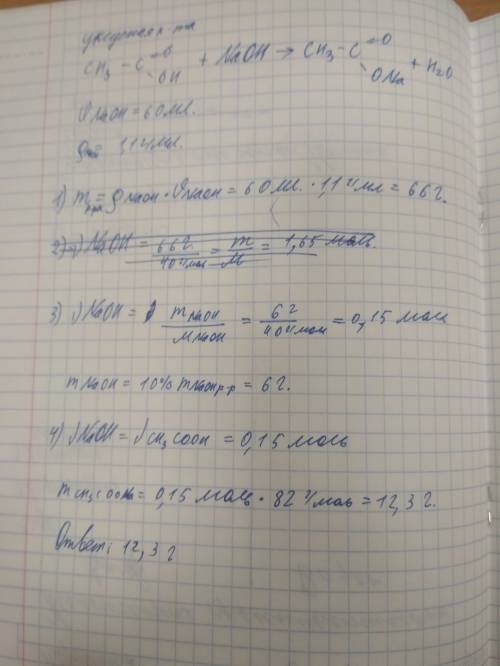 уксусная к-та
CH₃ – C =O OH + NaOH → CH₃ – C =O ONa + H₂O
V NaOH = 60 мл.
ρ = 1,1 г/мл.
1) m р-ра = ρ NaOH · V NaOH = 60 мл. · 1,1 г/мл = 66 г.
2) ν NaOH = 66 г. / 40 г/моль = m / M = 1,65 моль.
3) ν NaOH = m NaOH / M NaOH = 6 г / 40 г/моль = 0,15 моль
m NaOH = 10% m NaOH р-р = 6 г.
4) ν NaOH = ν CH₃COOH = 0,15 моль
m CH₃COONa = 0,15 моль · 82 г/моль = 12,3 г.
Ответ: 12,3 г